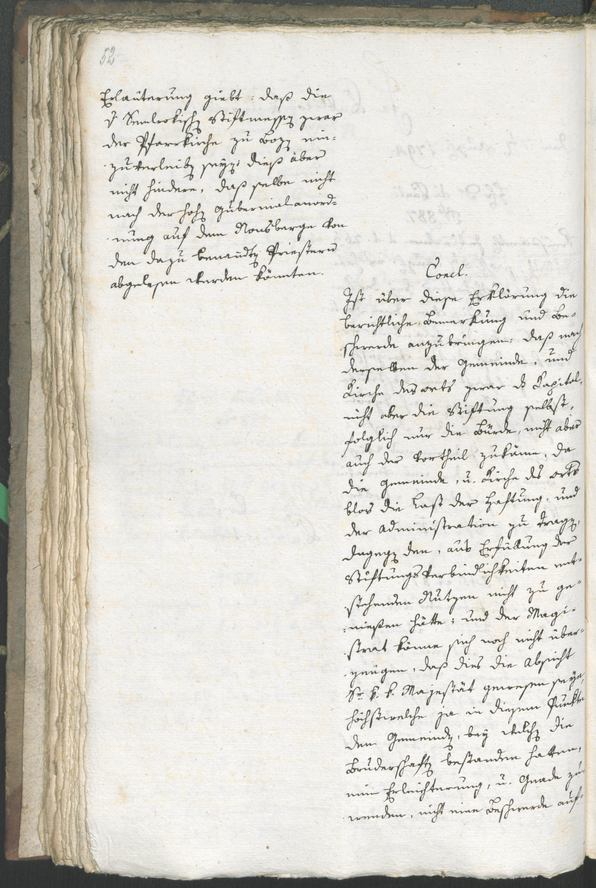 52
Erläuterung giebt: daß die
Stiftmessen zwar
der Pfarrkirche zu Boz: ein-
zuverleibt seyn; dieß aber
nicht hindere, daß selbe nicht
nach der hoh: Gubernialanord-
nung auf dem Nonsberge von
den dazu benanten Priestern
abgelesen werden könnten.
Concl.
Ist über diese Erklärung die
berichtliche Bemerkung und Be-
schwerde anzubringen: daß nach
derselben der Gemeinde, und
Kirche des Orts zwar das Kapital,
nicht aber die Stiftung selbst,
folglich nur die Bürde, nicht aber
auch der Vortheil zukäme, da
die Gemeinde, u. Kirche des Orts
blos die Last der Haftung, und
der Administration zu tragen,
dagegen den, aus Erfüllung der
Stiftungsverbindlichkeiten ent-
stehenden Nutzen nicht zu ge-
niessen hätte; und der Magi-
strat könne sich noch nicht über-
zeugen, daß dies die Absicht
Sr. k. k. Majestät gewesen seye,
höchstwelche ja in diesem Punkte
den Gemeinden, bey welchen die
Bruderschaften bestanden hatten,
eine Erleichterung, u. Gnade zu-
wenden, nicht eine Beschwerde auf-